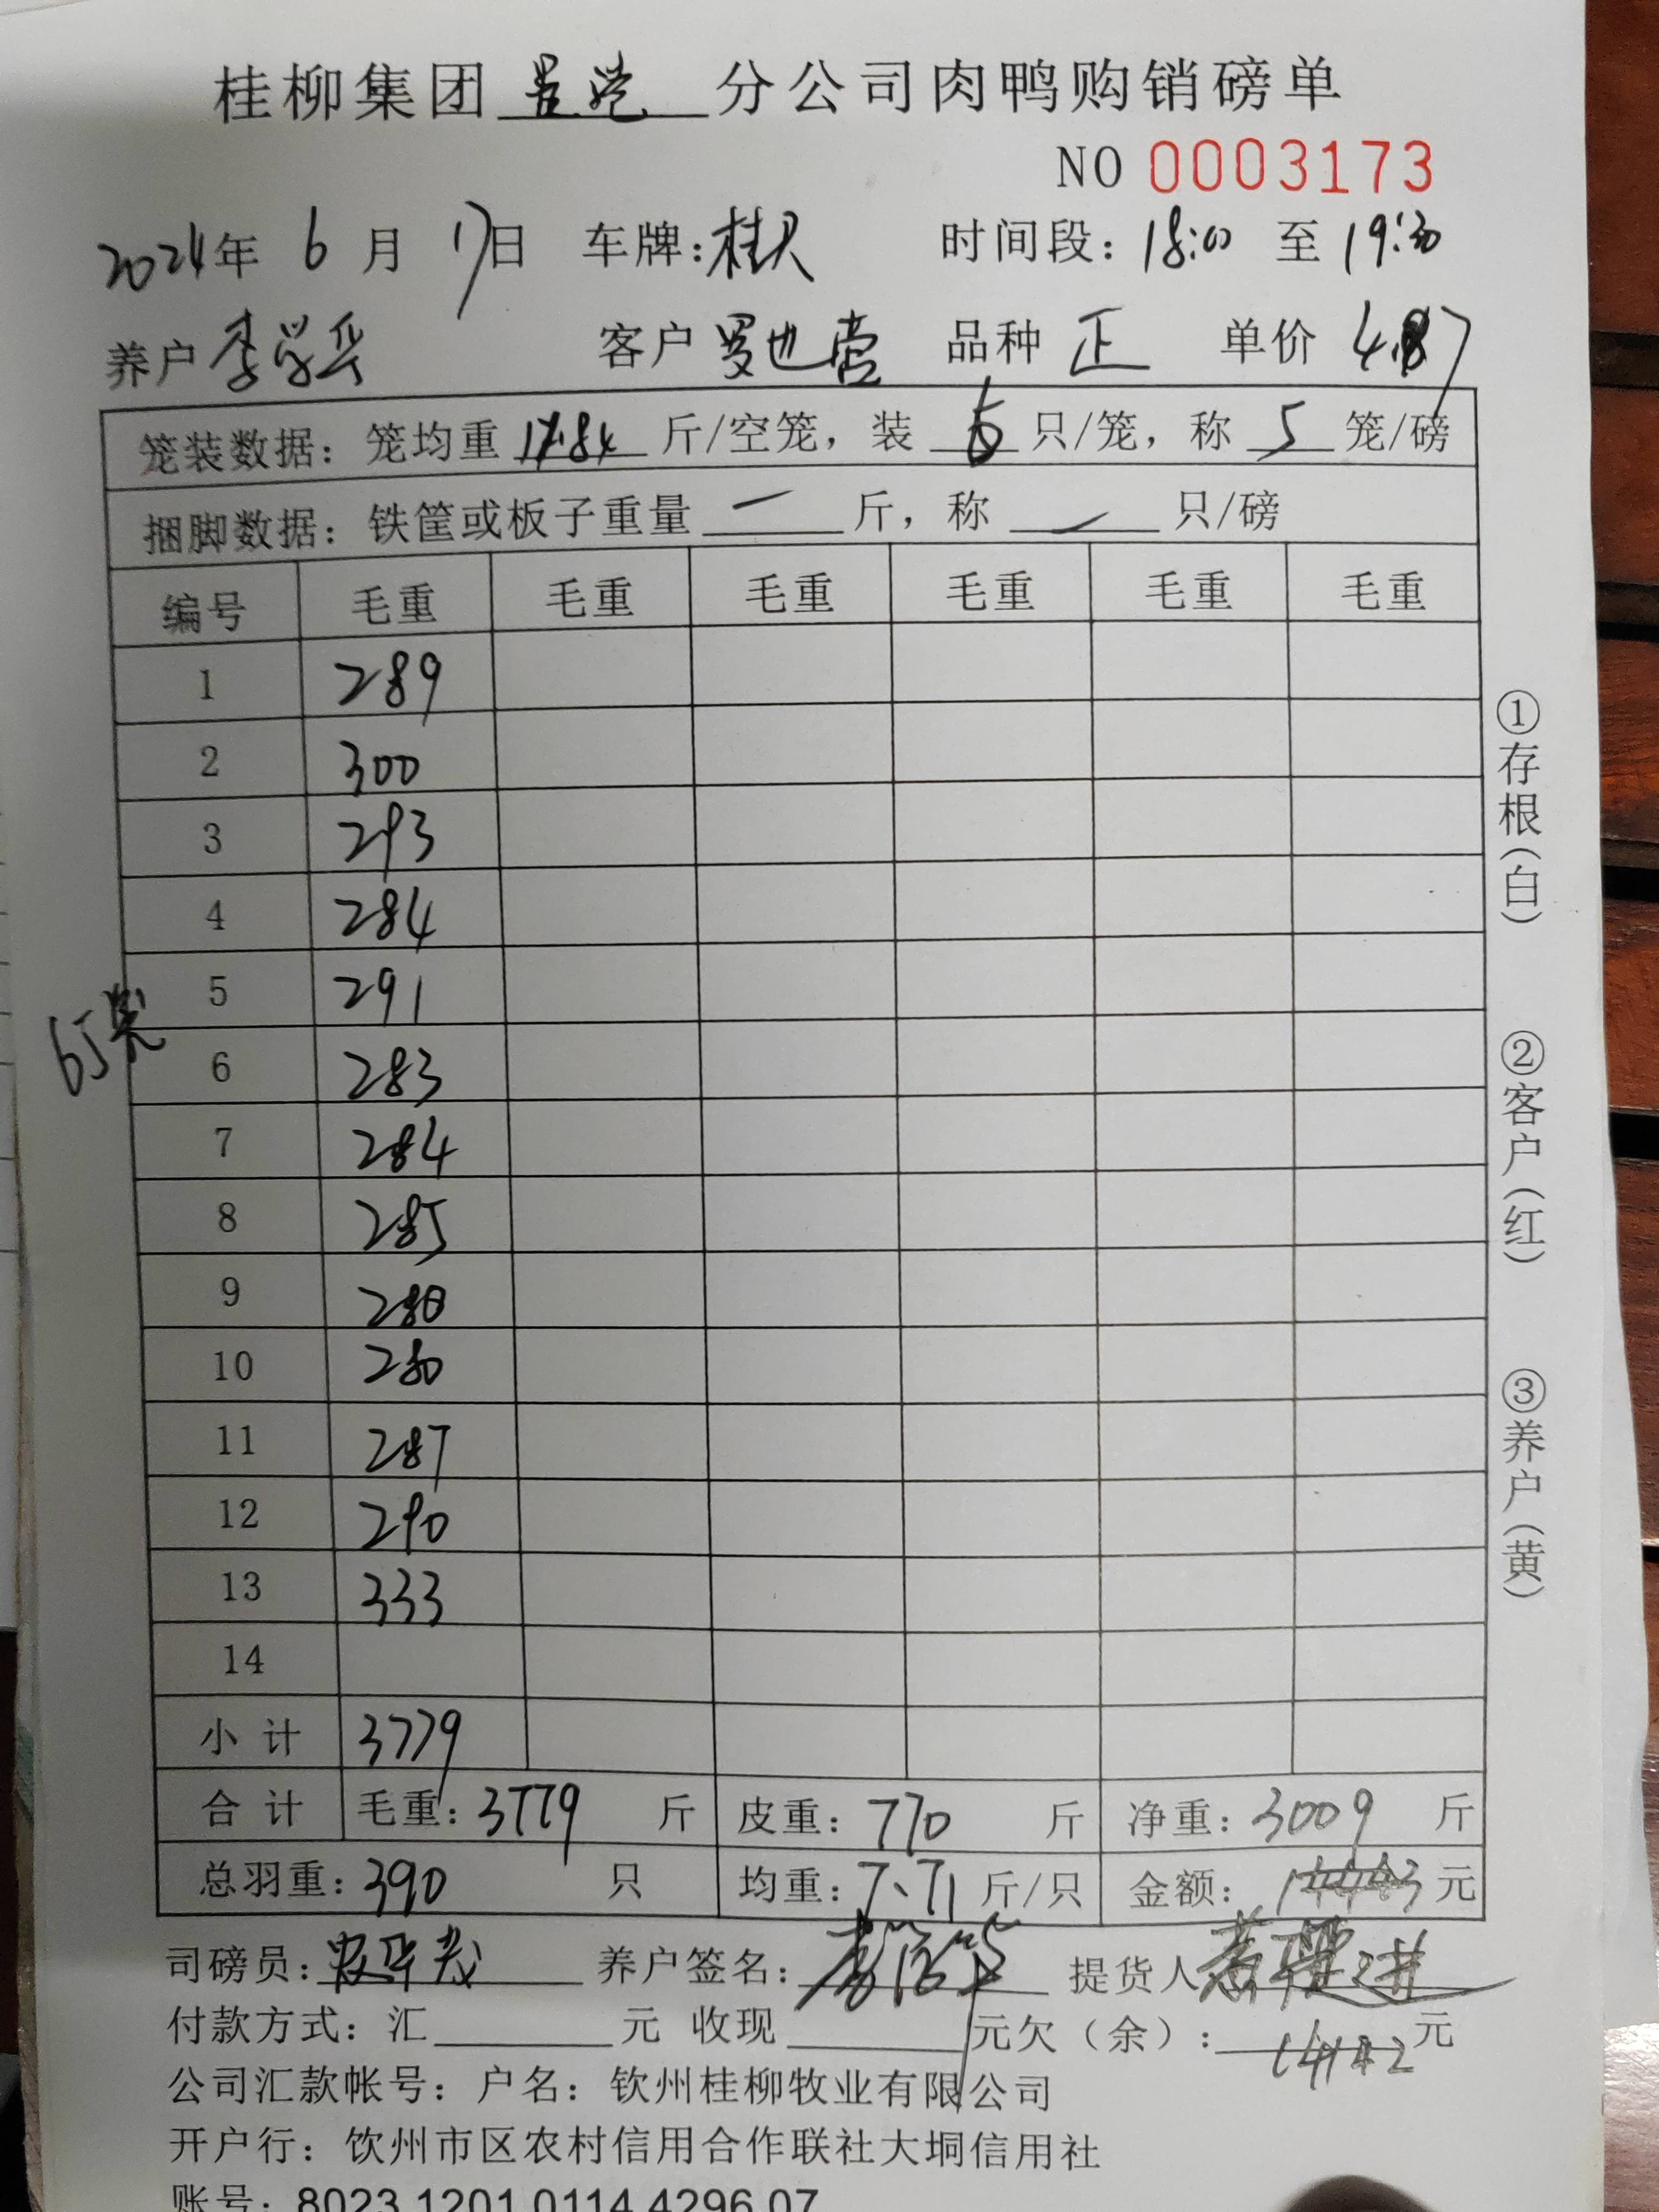 桂柳集团 贵港 分公司肉鸭购销磅单
NO 0003173
2024年 6月 17日 车牌: 时间段: 18:00 至 19:30
养户 李学兵 客户 罗也营 品种 正 单价 4.87
笼装数据: 笼均重 11.84 斤/空笼, 装 6 只/笼, 称 5 笼/磅
捆脚数据: 铁筐或板子重量 — 斤, 称 — 只/磅
编号 毛重 毛重 毛重 毛重 毛重 毛重
1 289
2 300
3 293
4 284
5 291
6 283
7 284
8 285
9 280
10 280
11 287
12 290
13 333
14
小计 3779
合计 毛重: 3779 斤 皮重: 770 斤 净重: 3009 斤
总羽重: 390 只 均重: 7.71 斤/只 金额: 元
司磅员: 养户签名: 提货人
付款方式: 汇 元 收现 元 欠(余): 元
公司汇款帐号: 户名: 钦州桂柳牧业有限公司
开户行: 钦州市区农村信用合作联社大垌信用社
账号: 8023 1201 0114 4296 07
65笼
①存根(白)
②客户(红)
③养户(黄)